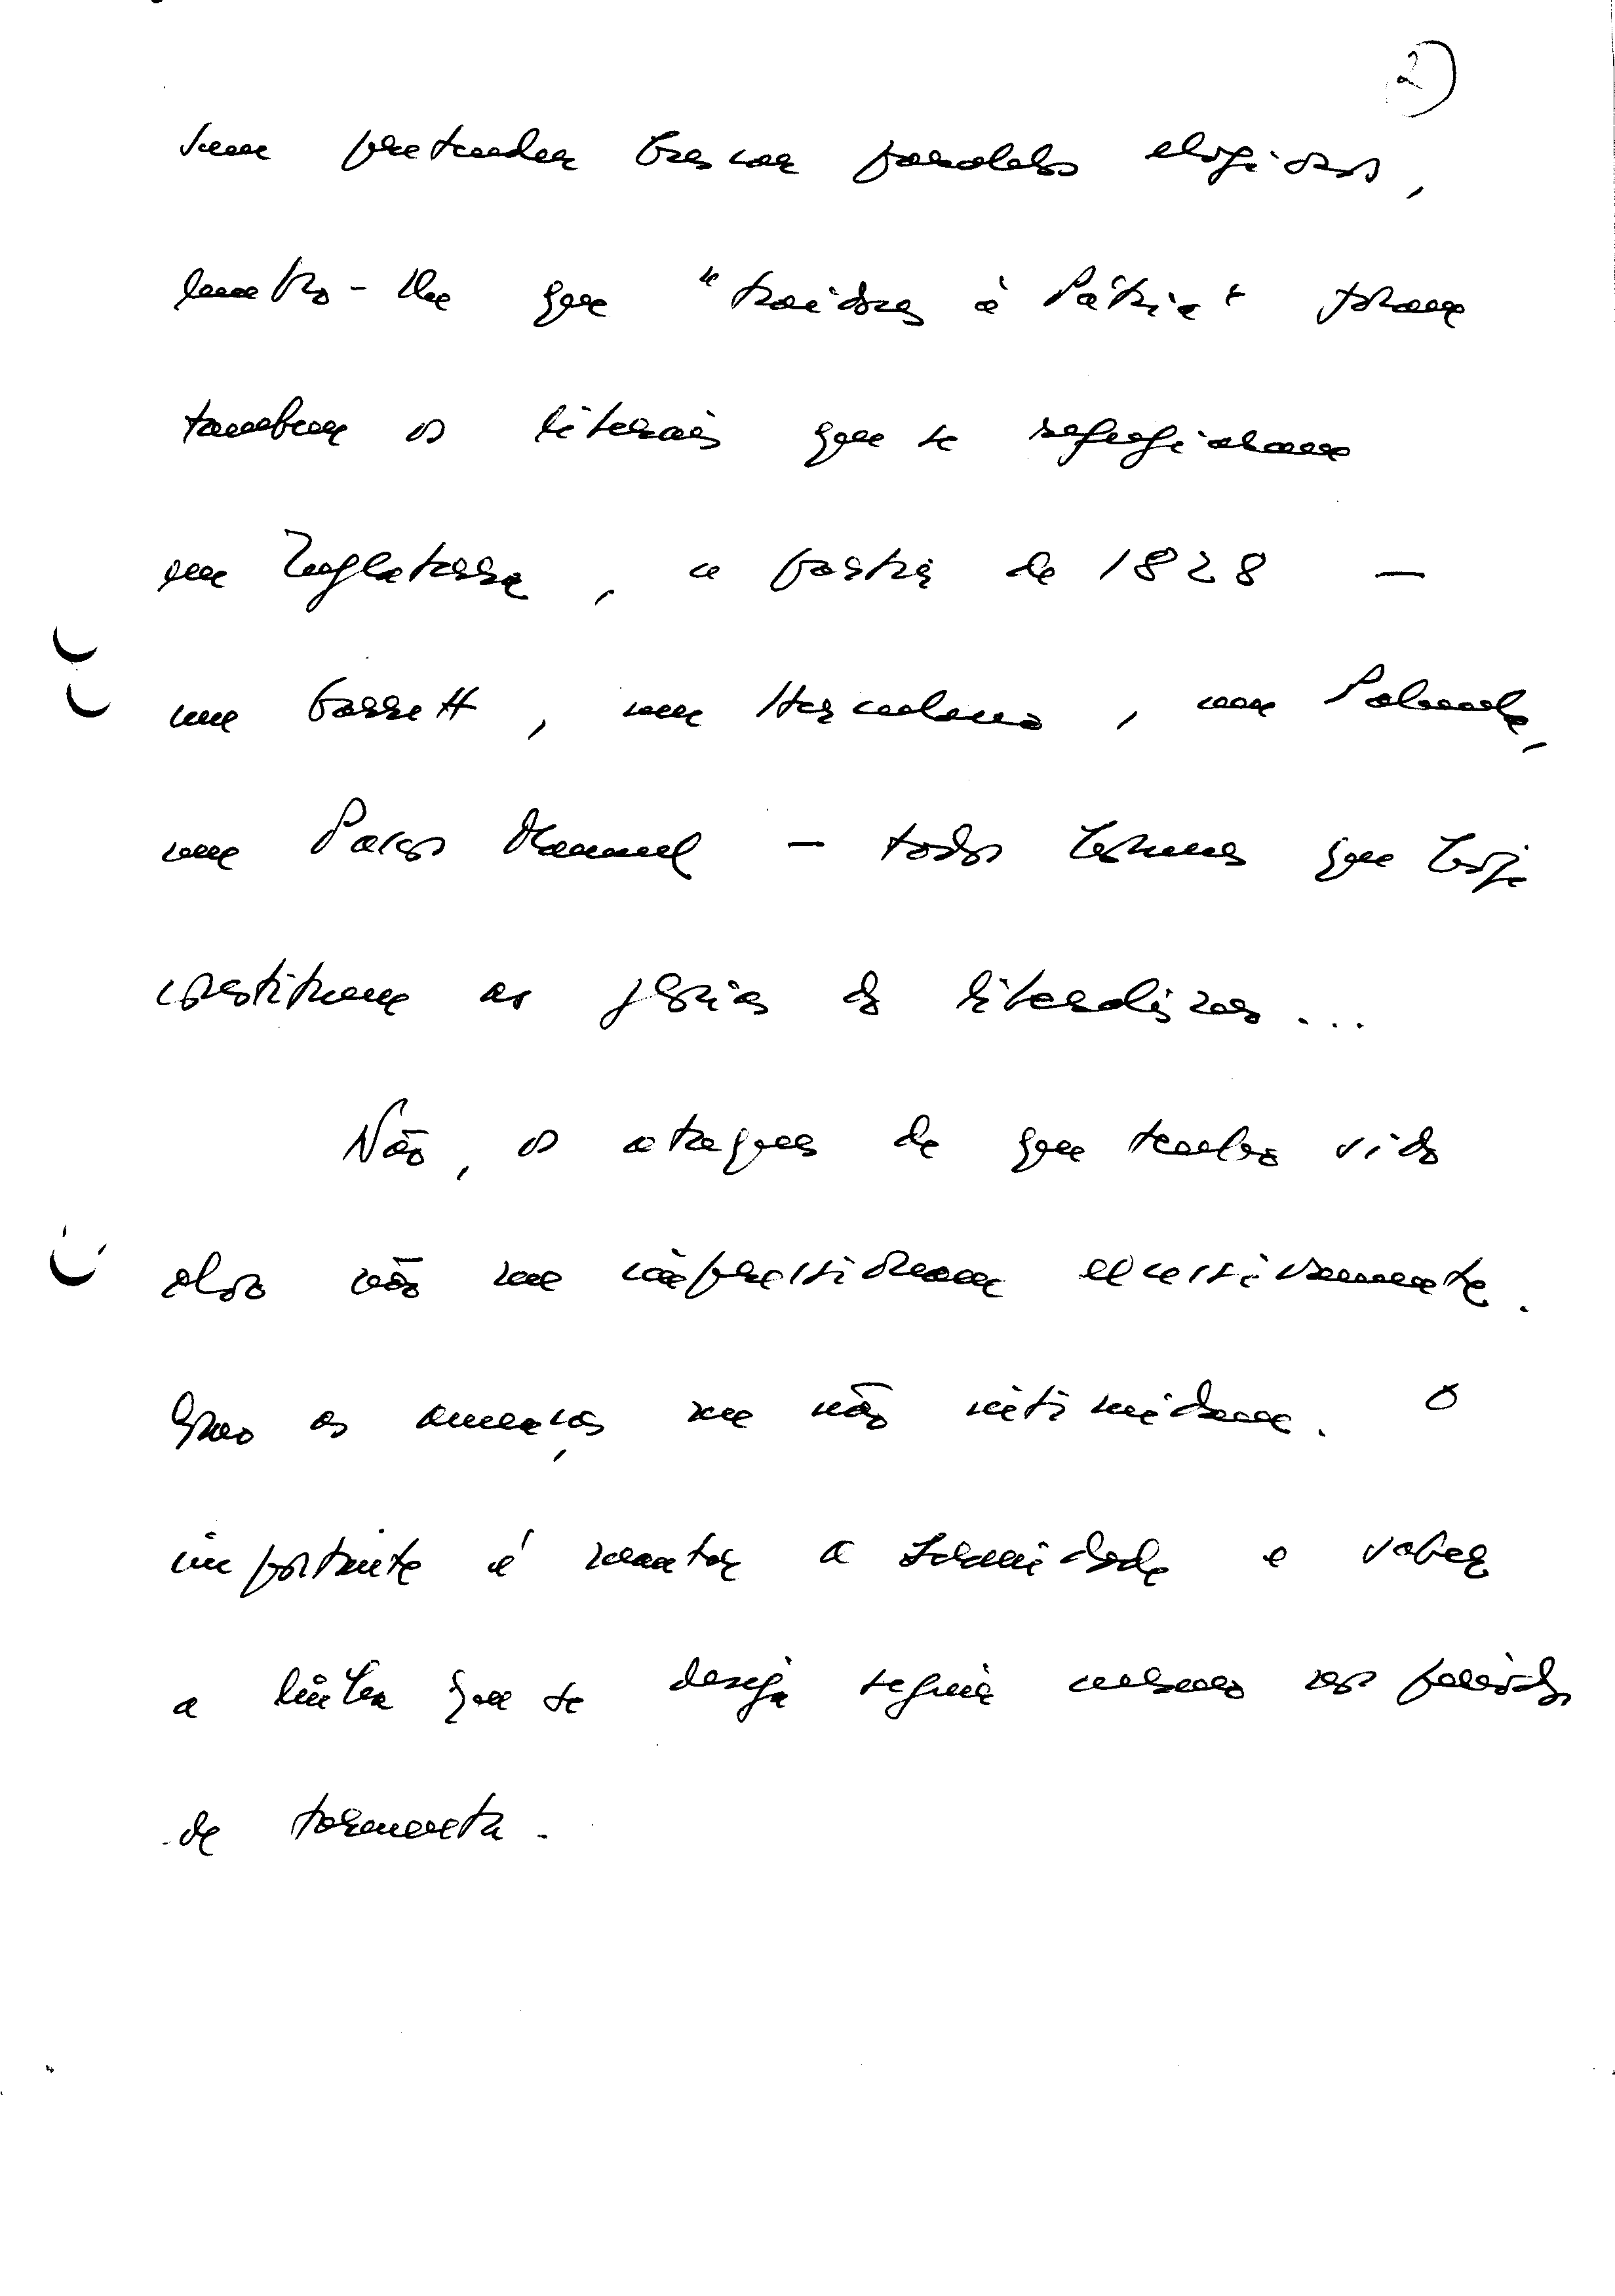 2)
sem pretender buscar paralelos elogiosos,
lembro-lhe que "traidores à Pátria" foram
também os liberais que se refugiaram
em Inglaterra, a partir de 1828 —
um Garrett, um Herculano, um Palmela,
um Passos Manuel — todos homens que hoje
constituem as glórias do liberalismo...
Não, os ataques de que tenho sido
alvo não me impressionam excessivamente.
as ameaças me não intimidam. O
importante é manter a serenidade e saber
a linha que se deseja seguir mesmo nos períodos
de tormenta.